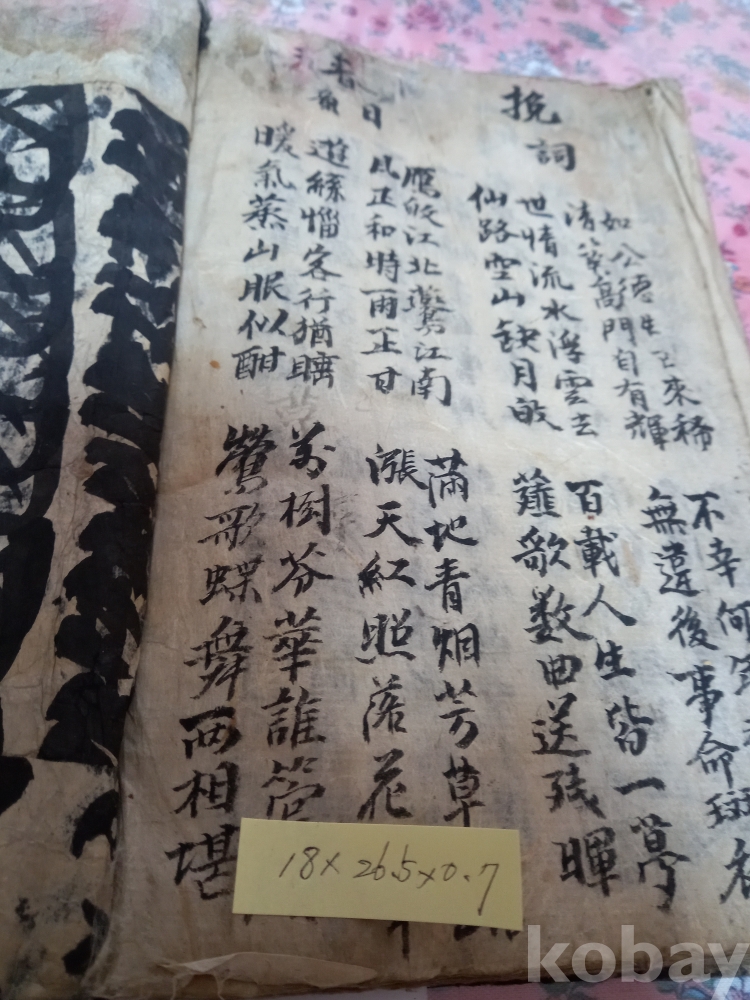 挽詞
如公德 來稀 不幸何
清 高門自有輝 無違後事命
世情流水浮雲去 百載人生皆一夢
仙路空山缺月皈 薤歌数曲送残暉
春日
鴈皈江北燕江南 滿地青烟芳草
凡正和時雨正甘 漲天紅照落花
遊絲惱客行猶 万樹芬華誰管
暖氣蒸山眠似酣 鶯歌蝶舞両相堪
18×26.5×0.7
kobay